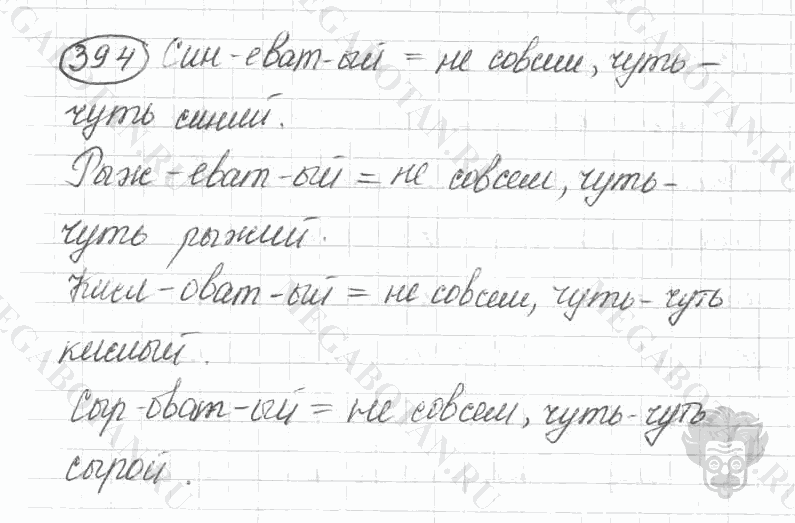 394 Син-еват-ый = не совсем, чуть-
чуть синий.
Рыж-еват-ый = не совсем, чуть-
чуть рыжий.
Кисл-оват-ый = не совсем, чуть-чуть
кислый.
Сыр-оват-ый = не совсем, чуть-чуть
сырой.
MEGABOTAN.RU